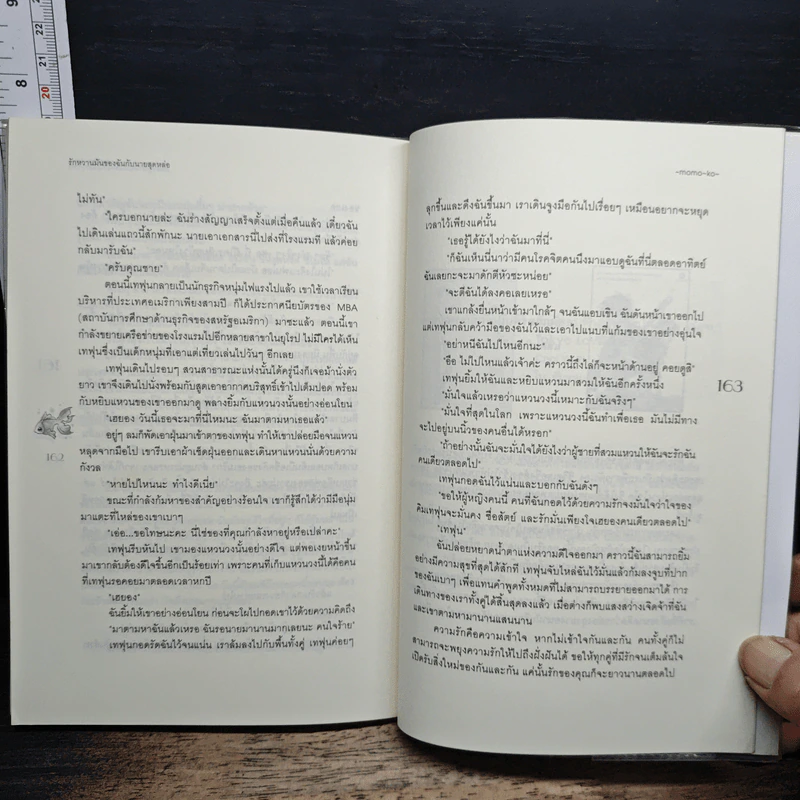 9
8
22
21
20
รักหวานมันของฉันกับนายสุดหล่อ
ไม่ทัน"
"ใครบอกนายล่ะ ฉันร่างสัญญาเสร็จตั้งแต่เมื่อคืนแล้ว เดี๋ยวฉัน
ไปเดินเล่นแถวนี้สักพักนะ นายเอาเอกสารนี้ไปส่งที่โรงแรมที แล้วค่อย
กลับมารับฉัน"
"ครับคุณชาย"
ตอนนี้เทฟุนกลายเป็นนักธุรกิจหนุ่มไฟแรงไปแล้ว เขาใช้เวลาเรียน
บริหารที่ประเทศอเมริกาเพียงสามปี ก็ได้ประกาศนียบัตรของ MBA
(สถาบันการศึกษาด้านธุรกิจของสหรัฐอเมริกา) มาซะแล้ว ตอนนี้เขา
กำลังขยายเครือข่ายของโรงแรมไปอีกหลายสาขาในยุโรป ไม่มีใครได้เห็น
เทฟุนซึ่งเป็นเด็กหนุ่มที่เอาแต่เที่ยวเล่นไปวันๆ อีกเลย
เทฟุนเดินไปรอบๆ สวนสาธารณะแห่งนั้นได้ครู่นึงก็เจอม้านั่งตัว
ยาว เขาจึงเดินไปนั่งพร้อมกับสูดเอาอากาศบริสุทธิ์เข้าไปเต็มปอด พร้อม
กับหยิบแหวนของเขาออกมาดู พลางยิ้มกับแหวนวงนั้นอย่างอ่อนโยน
"เฮยอง วันนี้เธอจะมาที่นี่ไหมนะ ฉันมาตามหาเธอแล้ว"
อยู่ๆ ลมก็พัดเอาฝุ่นมาเข้าตาของเทฟุน ทำให้เขาปล่อยมือจนแหวน
หลุดจากมือไป เขารีบเอาผ้าเช็ดฝุ่นออกและเดินหาแหวนนั่นด้วยความ
กังวล
"หายไปไหนนะ ทำไงดีเนี่ย"
ขณะที่กำลังก้มหาของสำคัญอย่างร้อนใจ เขาก็รู้สึกได้ว่ามีมือนุ่ม
มาแตะที่ไหล่ของเขาเบาๆ
"เอ่อ...ขอโทษนะคะ นี่ใช่ของที่คุณกำลังหาอยู่หรือเปล่าคะ"
เทฟุนรีบหันไป เขามองแหวนวงนั้นอย่างดีใจ แต่พอเงยหน้าขึ้น
มาเขากลับต้องดีใจขึ้นอีกเป็นร้อยเท่า เพราะคนที่เก็บแหวนวงนี้ได้คือคน
ที่เทฟุนรอคอยมาตลอดเวลาหกปี
"เฮยอง"
ฉันยิ้มให้เขาอย่างอ่อนโยน ก่อนจะโผไปกอดเขาไว้ด้วยความคิดถึง
"มาตามหาฉันแล้วเหรอ ฉันรอนายมานานมากเลยนะ คนใจร้าย"
เทฟุนกอดรัดฉันไว้จนแน่น เราล้มลงไปกับพื้นทั้งคู่ เทฟุนค่อยๆ
162
~momo-ko~
ลุกขึ้นและดึงฉันขึ้นมา เราเดินจูงมือกันไปเรื่อยๆ เหมือนอยากจะหยุด
เวลาไว้เพียงแค่นั้น
"เธอรู้ได้ยังไงว่าฉันมาที่นี่"
"ก็ฉันเห็นนี่นาว่ามีคนโรคจิตคนนึงมาแอบดูฉันที่นี่ตลอดอาทิตย์
ฉันเลยกะจะมาดักตีหัวซะหน่อย"
"จะตีฉันได้ลงคอเลยเหรอ"
เขาแกล้งยื่นหน้าเข้ามาใกล้ๆ จนฉันแอบเขิน ฉันดันหน้าเขาออกไป
แต่เทฟุนกลับคว้ามือของฉันไว้และเอาไปแนบที่แก้มของเขาอย่างอุ่นใจ
"อย่าหนีฉันไปไหนอีกนะ"
"ฮือ ไม่ไปไหนแล้วเจ้าค่ะ คราวนี้ถึงไล่ก็จะหน้าด้านอยู่ คอยดูสิ"
เทฟุนยิ้มให้ฉันและหยิบแหวนมาสวมให้ฉันอีกครั้งหนึ่ง
"มั่นใจแล้วเหรอว่าแหวนวงนี้เหมาะกับฉันจริงๆ"
"มั่นใจที่สุดในโลก เพราะแหวนวงนี้ฉันทำเพื่อเธอ มันไม่มีทาง
จะไปอยู่บนนิ้วของคนอื่นได้หรอก"
"ถ้าอย่างนั้นฉันจะมั่นใจได้ยังไงว่าผู้ชายที่สวมแหวนให้ฉันจะรักฉัน
คนเดียวตลอดไป"
เทฟุนกอดฉันไว้แน่นและบอกกับฉันดังๆ
"ขอให้ผู้หญิงคนนี้ คนที่ฉันกอดไว้ด้วยความรักจงมั่นใจว่าใจของ
คิมเทฟุนจะมั่นคง ซื่อสัตย์ และรักมั่นเพียงใจเฮยองคนเดียวตลอดไป"
"เทฟุน"
ฉันปล่อยหยาดน้ำตาแห่งความดีใจออกมา คราวนี้ฉันสามารถยิ้ม
อย่างมีความสุขที่สุดได้สักที เทฟุนจับไหล่ฉันไว้มั่นแล้วก้มลงจูบที่ปาก
ของฉันเบาๆ เพื่อแทนคำพูดทั้งหมดที่ไม่สามารถบรรยายออกมาได้ การ
เดินทางของเราทั้งคู่ได้สิ้นสุดลงแล้ว เมื่อต่างก็พบแสงสว่างเจิดจ้าที่ฉัน
และเขาตามหามานานแสนนาน
ความรักคือความเข้าใจ หากไม่เข้าใจกันและกัน คนทั้งคู่ก็ไม่
สามารถจะพยุงความรักให้ไปถึงฝั่งฝันได้ ขอให้ทุกคู่ที่มีรักจนเต็มล้นใจ
เปิดรับสิ่งใหม่ของกันและกัน แค่นั้นรักของคุณก็จะยาวนานตลอดไป
163